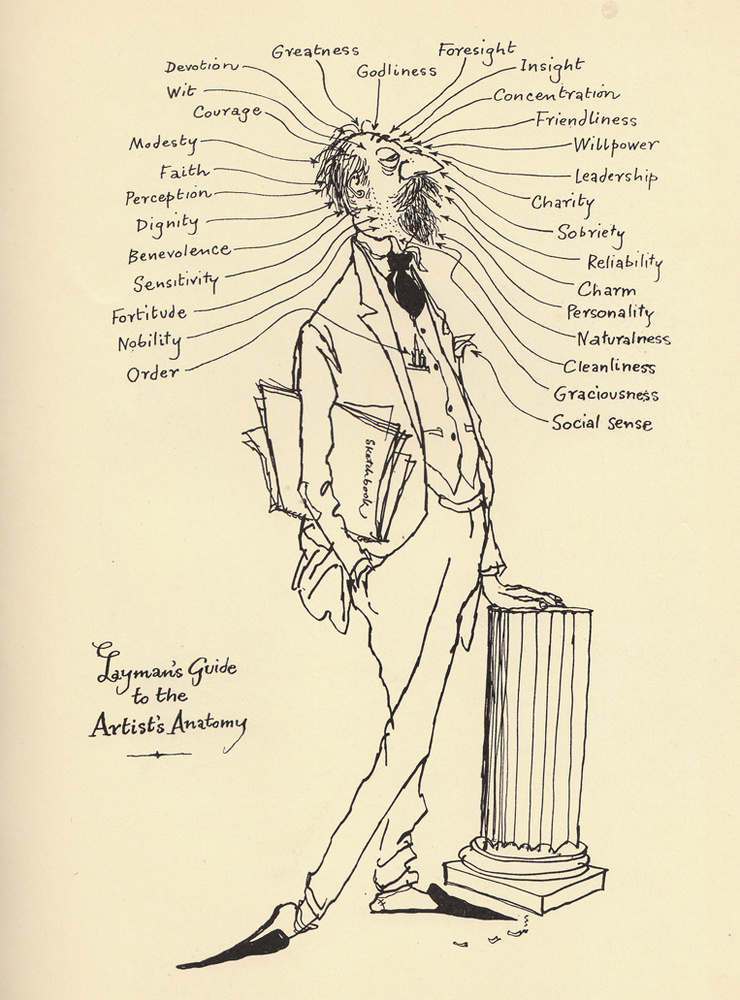 Greatness
Foresight
Devotion
Godliness
Insight
Wit
Concentration
Courage
Friendliness
Modesty
Willpower
Faith
Leadership
Perception
Charity
Dignity
Sobriety
Benevolence
Reliability
Sensitivity
Charm
Fortitude
Personality
Nobility
Naturalness
Order
Cleanliness
Graciousness
Social sense
Sketchbook
Layman's Guide
to the
Artist's Anatomy